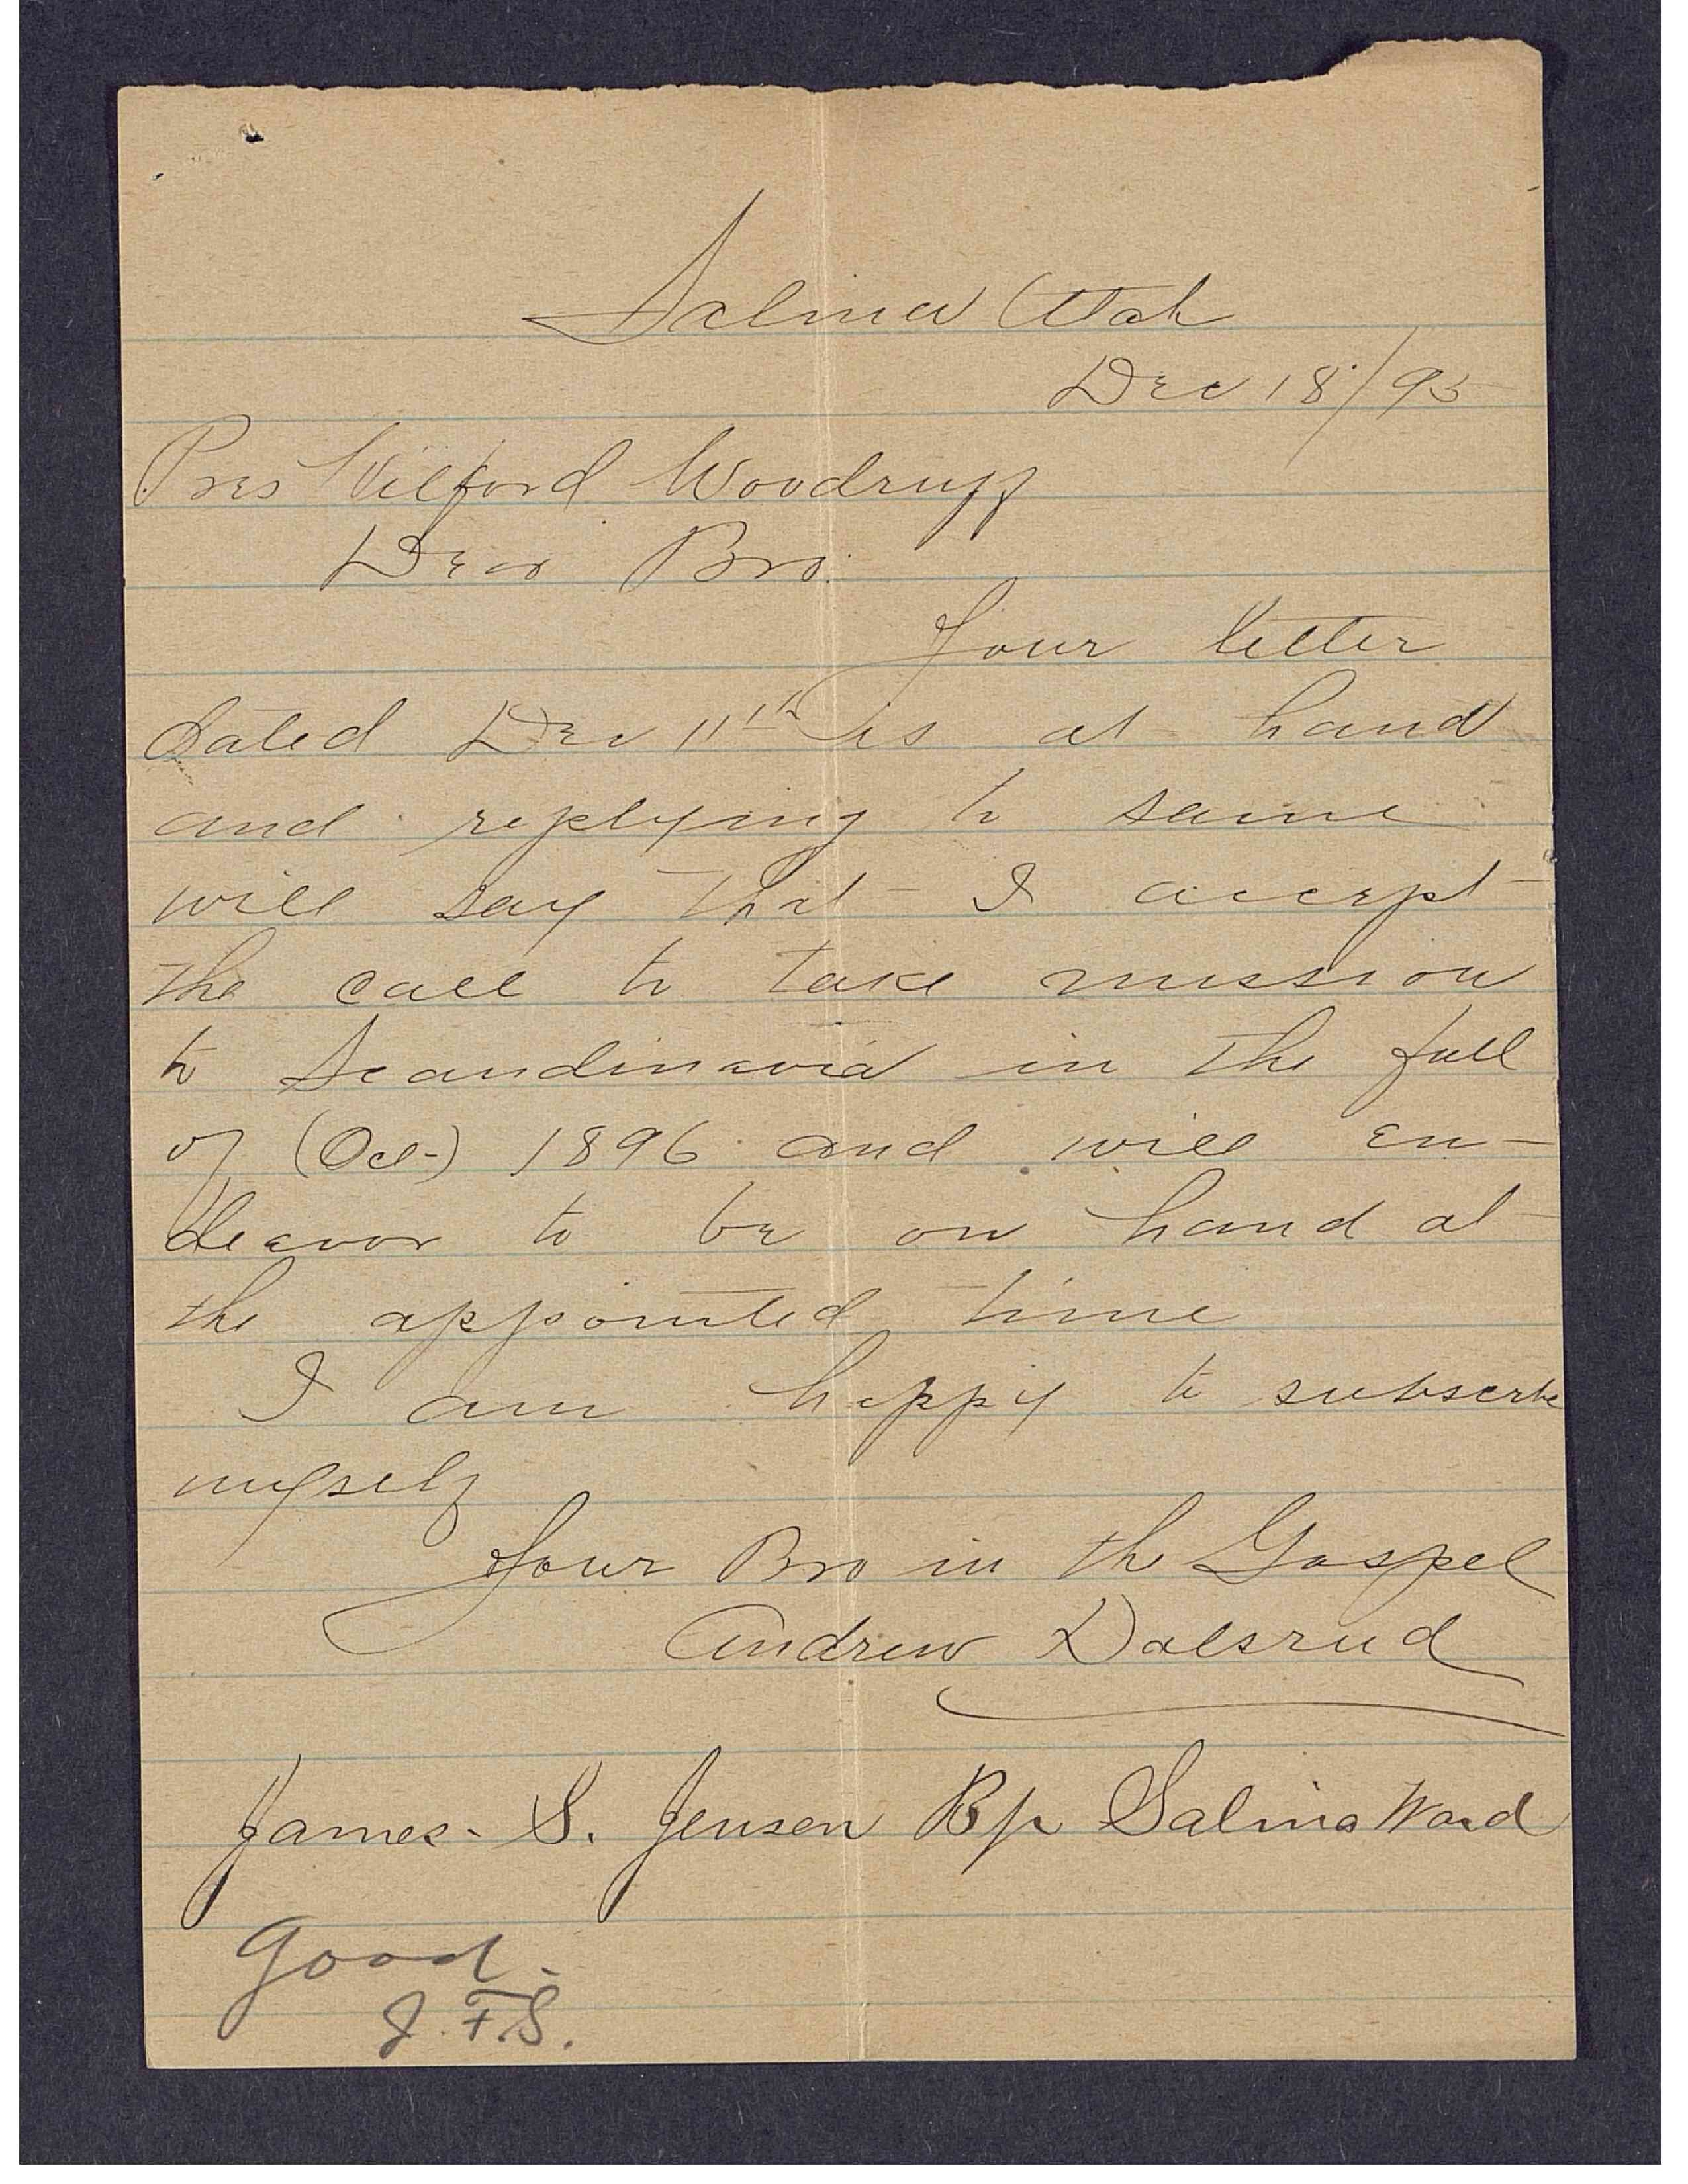 Salina Utah
Dec 18/95
Pres Wilford Woodruff
Dear Bro.
Your letter
dated Dec 11th is at hand
and replying to same
will say that I accept
the call to take mission
to Scandinavia in the fall
of (Oct) 1896 and will en-
deavor to be on hand at
the appointed time
I am happy to subscribe
myself
Your Bro in th Gospel
Andrew Dalsrud
James. S. Jensen Bp Salina Ward
Good.
J. F. S.